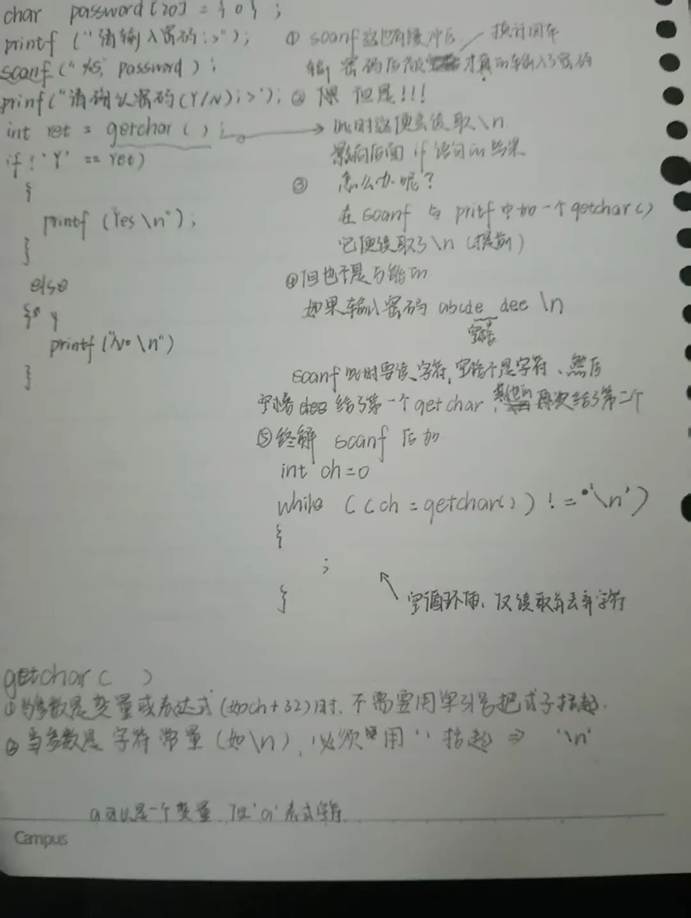 char password[20] = {0};
printf ("请输入密码:>");
scanf ("%s", password);
printf("请确认密码(Y/N):>");
int ret = getchar();
if ('Y' == ret)
{
printf (Yes\n");
}
else
{
printf("No\n")
}
① scanf
输 密码后 才 输入了密码
② 但是!!!
此时 便会读取\n
影响后面 if 语句的结果
③ 怎么办呢?
在 scanf 与 pritf 中加一个getchar()
它便读取了\n (提前)
④但也不是万能的
如果输入密码 abcde dee \n
空格
scanf 此时要读字符,空格不是字符、然后
空格 dee 给了第一个 getchar, 再次给了第二个
⑤终解 scanf 后加
int ch=0
while ((ch = getchar()) != '\n')
{
;
}
空循环体、仅读取并丢弃字符
getchar ( )
①当参数是变量或表达式(如ch+32)时、不需要用单引号把式子括起.
②当参数是字符常量(如\n),必须 用 '' 括起 ⇒ '\n'
a 可以是一个变量,但'a'
Campus